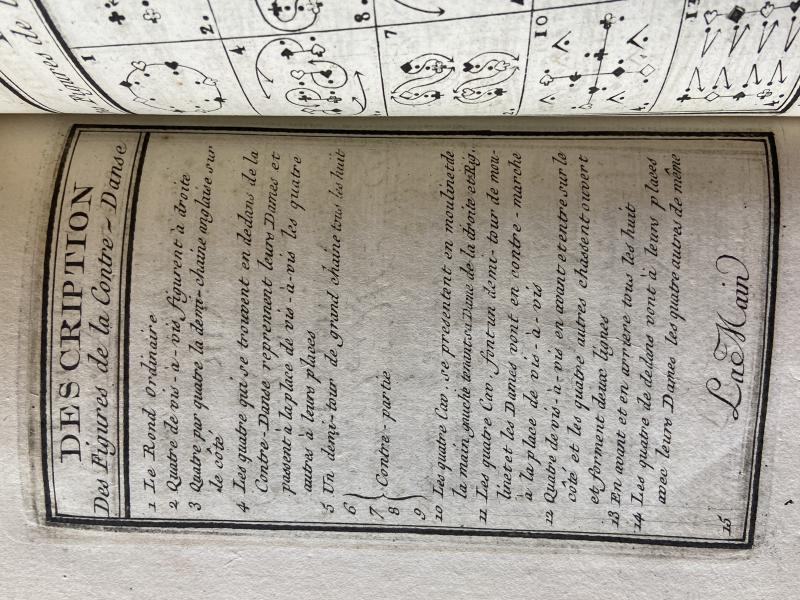 DESCRIPTION
Des Figures de la Contre-Danse
1 Le Rond Ordinaire
2 Quatre de vis-à-vis figurent à droite
3 Quatre par quatre la demi-chaine anglaise sur
le côté
4 Les quatre qui se trouvent en dedans de la
Contre-Danse reprennent leurs Dames et
passent à la place de vis-à-vis les quatre
autres à leurs places
5 Un demi-tour de grand chaine tous les huit
6
7 Contre-partie
8
9
10 Les quatre Cav. se presentent en moulinet de
la main gauche tenants Dame de la droite et Rig.
11 Les quatre Cav. font un demi-tour de mou-
linet et les Dames vont en contre-marche
à la place de vis-à-vis
12 Quatre de vis-à-vis en avant et entre sur le
côté et les quatre autres chassent ouvert
et forment deux lignes
13 En avant et en arriere tous les huit
14 Les quatre de dedans vont à leurs places
avec leurs Dames les quatre autres de même
15 La Main
1
2.
4
8.
7
10